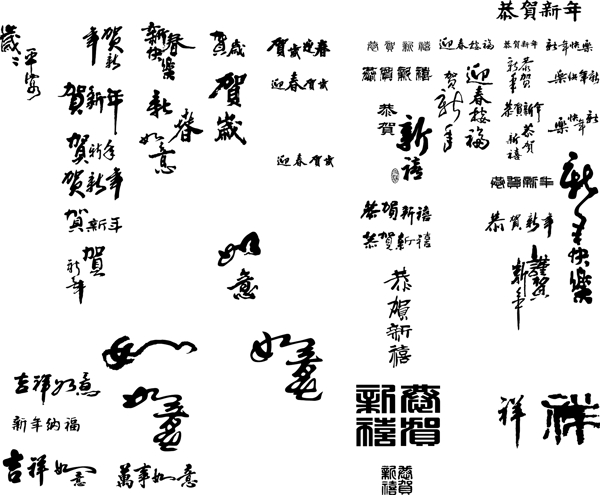 恭賀新年
歲歲平安
賀新年
新春快樂
賀歲
賀歲迎春
恭賀新禧
迎春接福
恭賀新年
新年快樂
賀新年
新春如意
賀歲
迎春賀歲
恭賀新禧
恭賀
新禧
賀新年
迎春接福
恭賀新年
恭賀新年
恭賀新禧
新年快樂
賀新年
賀新年
迎春賀歲
恭賀新年
新年快樂
賀新年
恭賀新禧
恭賀新年
賀新年
恭賀新禧
如意
謹賀新年
恭賀新禧
如意
如意
吉祥如意
新年納福
恭賀新禧
祥
祥
吉祥如意
萬事如意
恭賀新禧